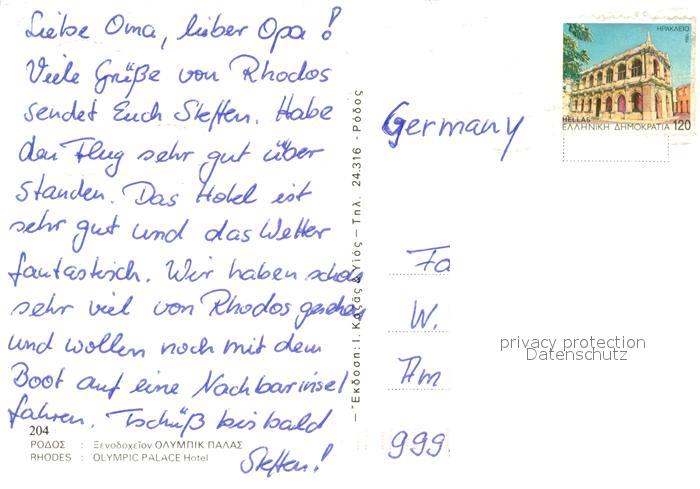 Liebe Oma, lieber Opa!
Viele Grüße von Rhodos
sendet Euch Steffen. Habe
den Flug sehr gut über
standen. Das Hotel ist
sehr gut und das Wetter
fantastisch. Wir haben schon
sehr viel von Rhodos gesehen
und wollen noch mit dem
Boot auf eine Nachbarinsel
fahren. Tschüß bis bald
Steffen!
204
ΡΟΔΟΣ : Ξενοδοχεῖον ΟΛΥΜΠΙΚ ΠΑΛΑΣ
RHODES : OLYMPIC PALACE Hotel
– Ἔκδοση: Ι. Κοζᾶς & Υἱός – Τηλ. 24.316 - Ρόδος
ΗΡΑΚΛΕΙΟ
HELLAS
ΕΛΛΗΝΙΚΗ ΔΗΜΟΚΡΑΤΙΑ 120
Germany
Fa
W.
Am
999
privacy protection
Datenschutz